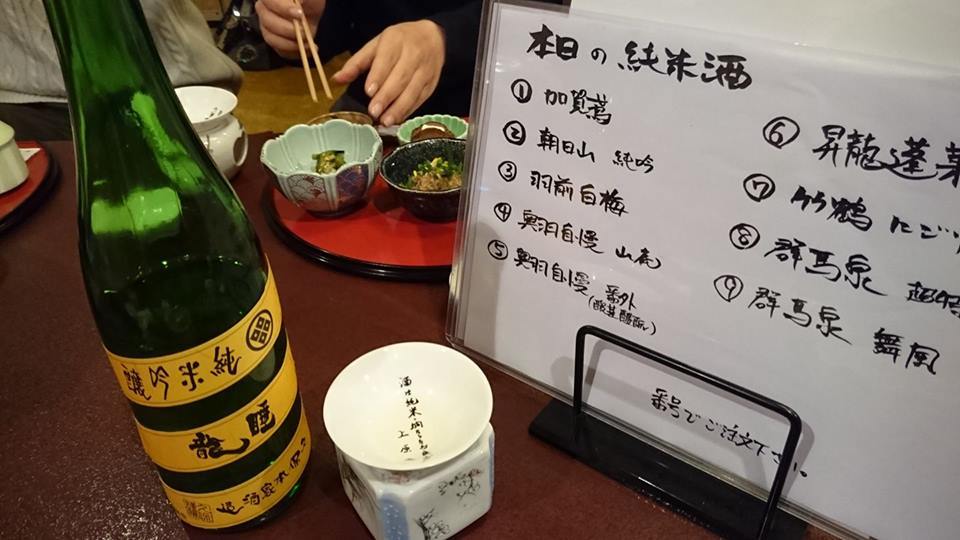 本日の純米酒
① 加賀鳶
② 朝日山 純吟
③ 羽前白梅
④ 奥羽自慢 山廃
⑤ 奥羽自慢 番外
⑥ 昇龍蓬莱
⑦ 竹鶴 にごり
⑧ 群馬泉 超特
⑨ 群馬泉 舞風
番号でご注文下さい
純米吟醸
睡龍
久保本家酒造
酒は純米、燗ならなお
上原